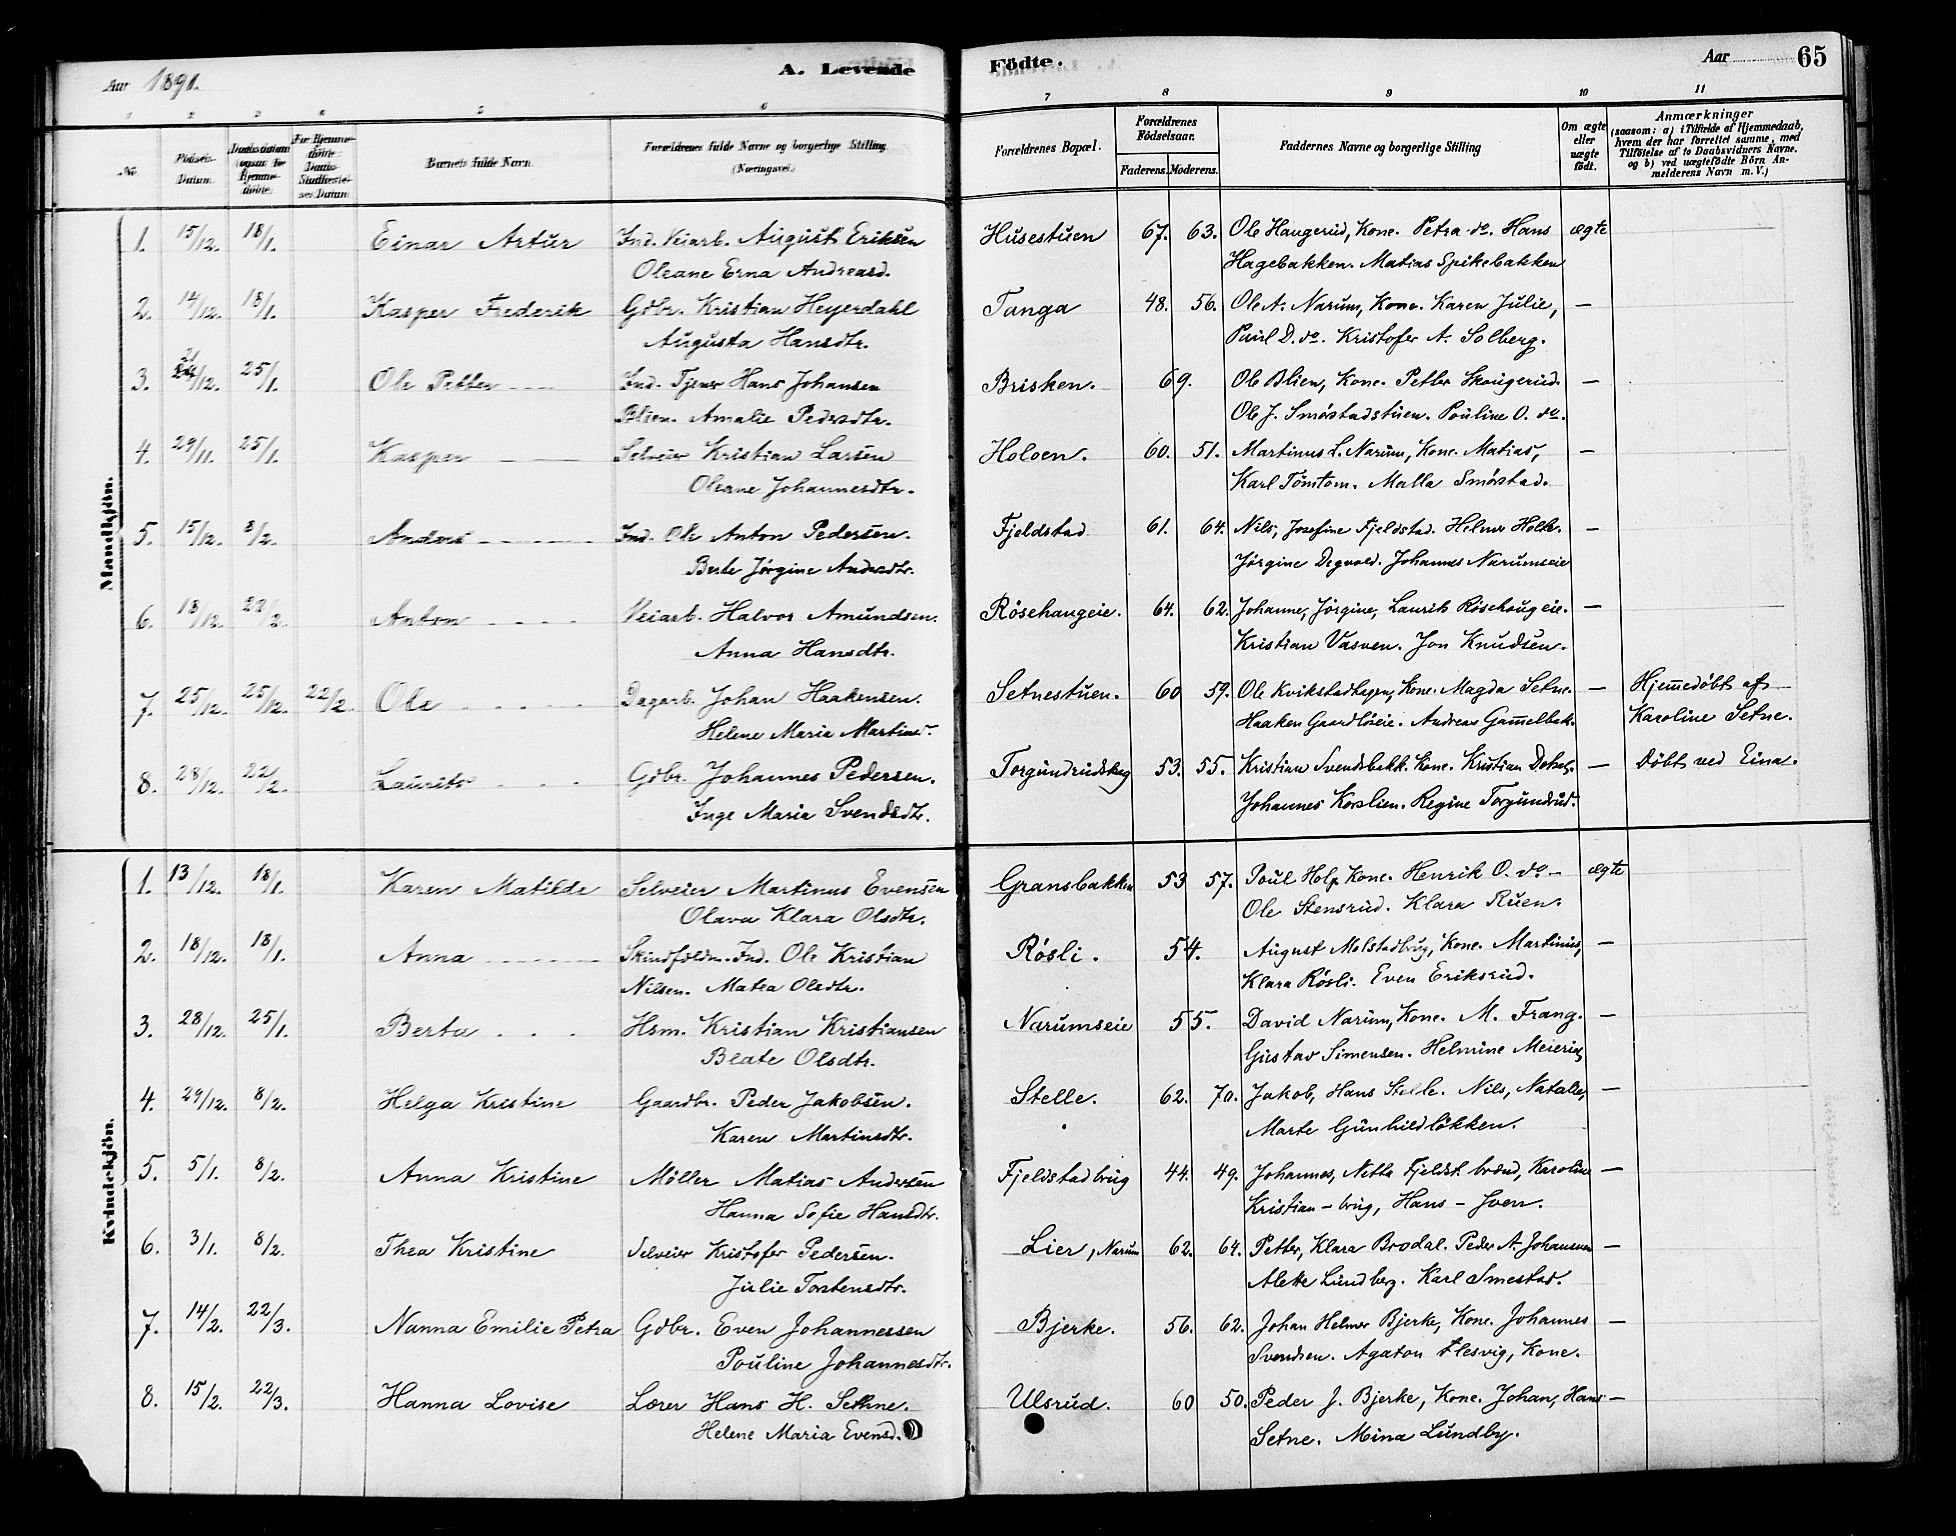 Aar 1891.
A. Levende
Födte.
Aar
65
1 2 3 4 5 6 7 8 9 10 11
No.
Födsels-Datum.
Barnets fulde Navn.
Forældrenes fulde Navne og borgerlige Stilling
(Næringsvei.)
Forældrenes Bopæl.
Forældrenes Födselsaar.
Faderens. Moderens.
Faddernes Navne og borgerlige Stilling
Om ægte eller uægte födt.
Anmærkninger
(saasom: a) i Tilfælde af Hjemmedaab,
hvem der har forrettet samme, med
Tilföielse af to Daabsvidners Navne,
og b) ved uægtefödte Börn An-
melderens Navn m. V.)
Mandkjön.
1. 15/12. 18/1. Einar Artur Ind. Veiarb. August Eriksen Husestuen 67. 63. Ole Haugerud, Kone. Petra do. Hans ægte
Oleane Erna Andreasd. Hagebakken. Matias Spikebakken
2. 14/12. 18/1. Kasper Frederik Gdbr. Kristian Heyerdahl Tanga 48. 56. Ole A. Narum, Kone. Karen Julie, —
Augusta Hansdtr. Paul D. do. Kristofer A. Solberg.
3. 21/12. 25/1. Ole Petter Ind. Tjener Hans Johansen Brisken. 69. Ole Blien, Kone. Petter Skougerud. —
Blien. Amalie Pedersdtr. Ole J. Smøstadstuen. Pouline O. do.
4. 29/11. 25/1. Kasper Selveier Kristian Larsen Holoen. 60. 51. Martinus L. Narum, Kone. Matias, —
Oleane Johannesdtr. Karl Tømtom. Malla Smøstad.
5. 15/12. 8/2. Anders Ind. Ole Anton Pedersen. Fjeldstad 61. 64. Nils, Josefine Fjeldstad. Helmer Holte. —
Berte Jørgine Andersdtr. Jørgine Degvold. Johannes Narumseie
6. 18/12. 22/2. Anton Veiarb. Halvor Amundsen. Røsehaugeie. 64. 62. Johanne, Jørgine, Laurits Røsehougeie. —
Anna Hansdtr. Kristian Vasven. Jon Knudsen.
7. 25/12. 25/12. 22/2. Ole Dagarb. Johan Haakensen. Setnestuen. 60 59. Ole Kvikstadhagen, Kone. Magda Setne. — Hjemmedøbt af
Helene Maria Martinsd. Haaken Gaardløseie. Andreas Gammelbak. Karoline Setne.
8. 28/12. 22/2. Laurits Gdbr. Johannes Pedersen. Torgundrudshag 53. 55. Kristian Svendsbakk. Kone. Kristian — Døbt ved Eina.
Inge Maria Svendsdtr. Johannes Korslien. Regine Torgundrud.
Kvindekjön.
1. 13/12. 18/1. Karen Matilde Selveier Martinus Evensen Gransbakken 53 57. Poul Kone. Henrik O. do — ægte
Olava Klara Olsdtr. Ole Stensrud. Klara Ruen.
2. 18/12. 18/1. Anna Skindfeldm. Ind. Ole Kristian Røsli. 54. August Molstadbrug, Kone. Martinus, —
Nilsen. Matea Olsdtr. Klara Røsli. Even Eriksrud.
3. 28/12. 25/1. Berta Hsm. Kristian Kristiansen Narumseie 55. David Narum, Kone. M. Frang. —
Beate Olsdtr. Gustav Simensen. Helmine Meieriet
4. 29/12. 8/2. Helga Kristine Gaardbr. Peder Jakobsen. Stelle. 62. 70. Jakob, Hans Stelle. Nils, Natalie, —
Karen Martinsdtr. Marte Gunhildløkken.
5. 5/1. 8/2. Anna Kristine Møller Matias Andersen Fjeldstadbrug 44. 49. Johannes, Netta Fjeldst. brænd, Karoline —
Hanna Sofie Hansdtr. Kristian – brug, Hans – Iven.
6. 3/1. 8/2. Thea Kristine Selveier Kristofer Pedersen. Lier, Narum 62. 64. Petter, Klara Brodal. Peder A. Johansen —
Julie Torstensdtr. Alete Lundberg. Karl Smestad.
7. 14/2. 22/3. Nanna Emilie Petra Gdbr. Even Johannessen Bjerke. 56. 62. Johan Helmer Bjerke, Kone. Johannes —
Pouline Johannesdtr. Svendsen. Agaton Flesvig, Kone.
8. 15/2. 22/3. Hanna Lovise Lærer Hans H. Sethne. Ulsrud. 60 50. Peder J. Bjerke, Kone. Johan, Hans —
Helene Maria Evensd. Setne. Mina Lundby.